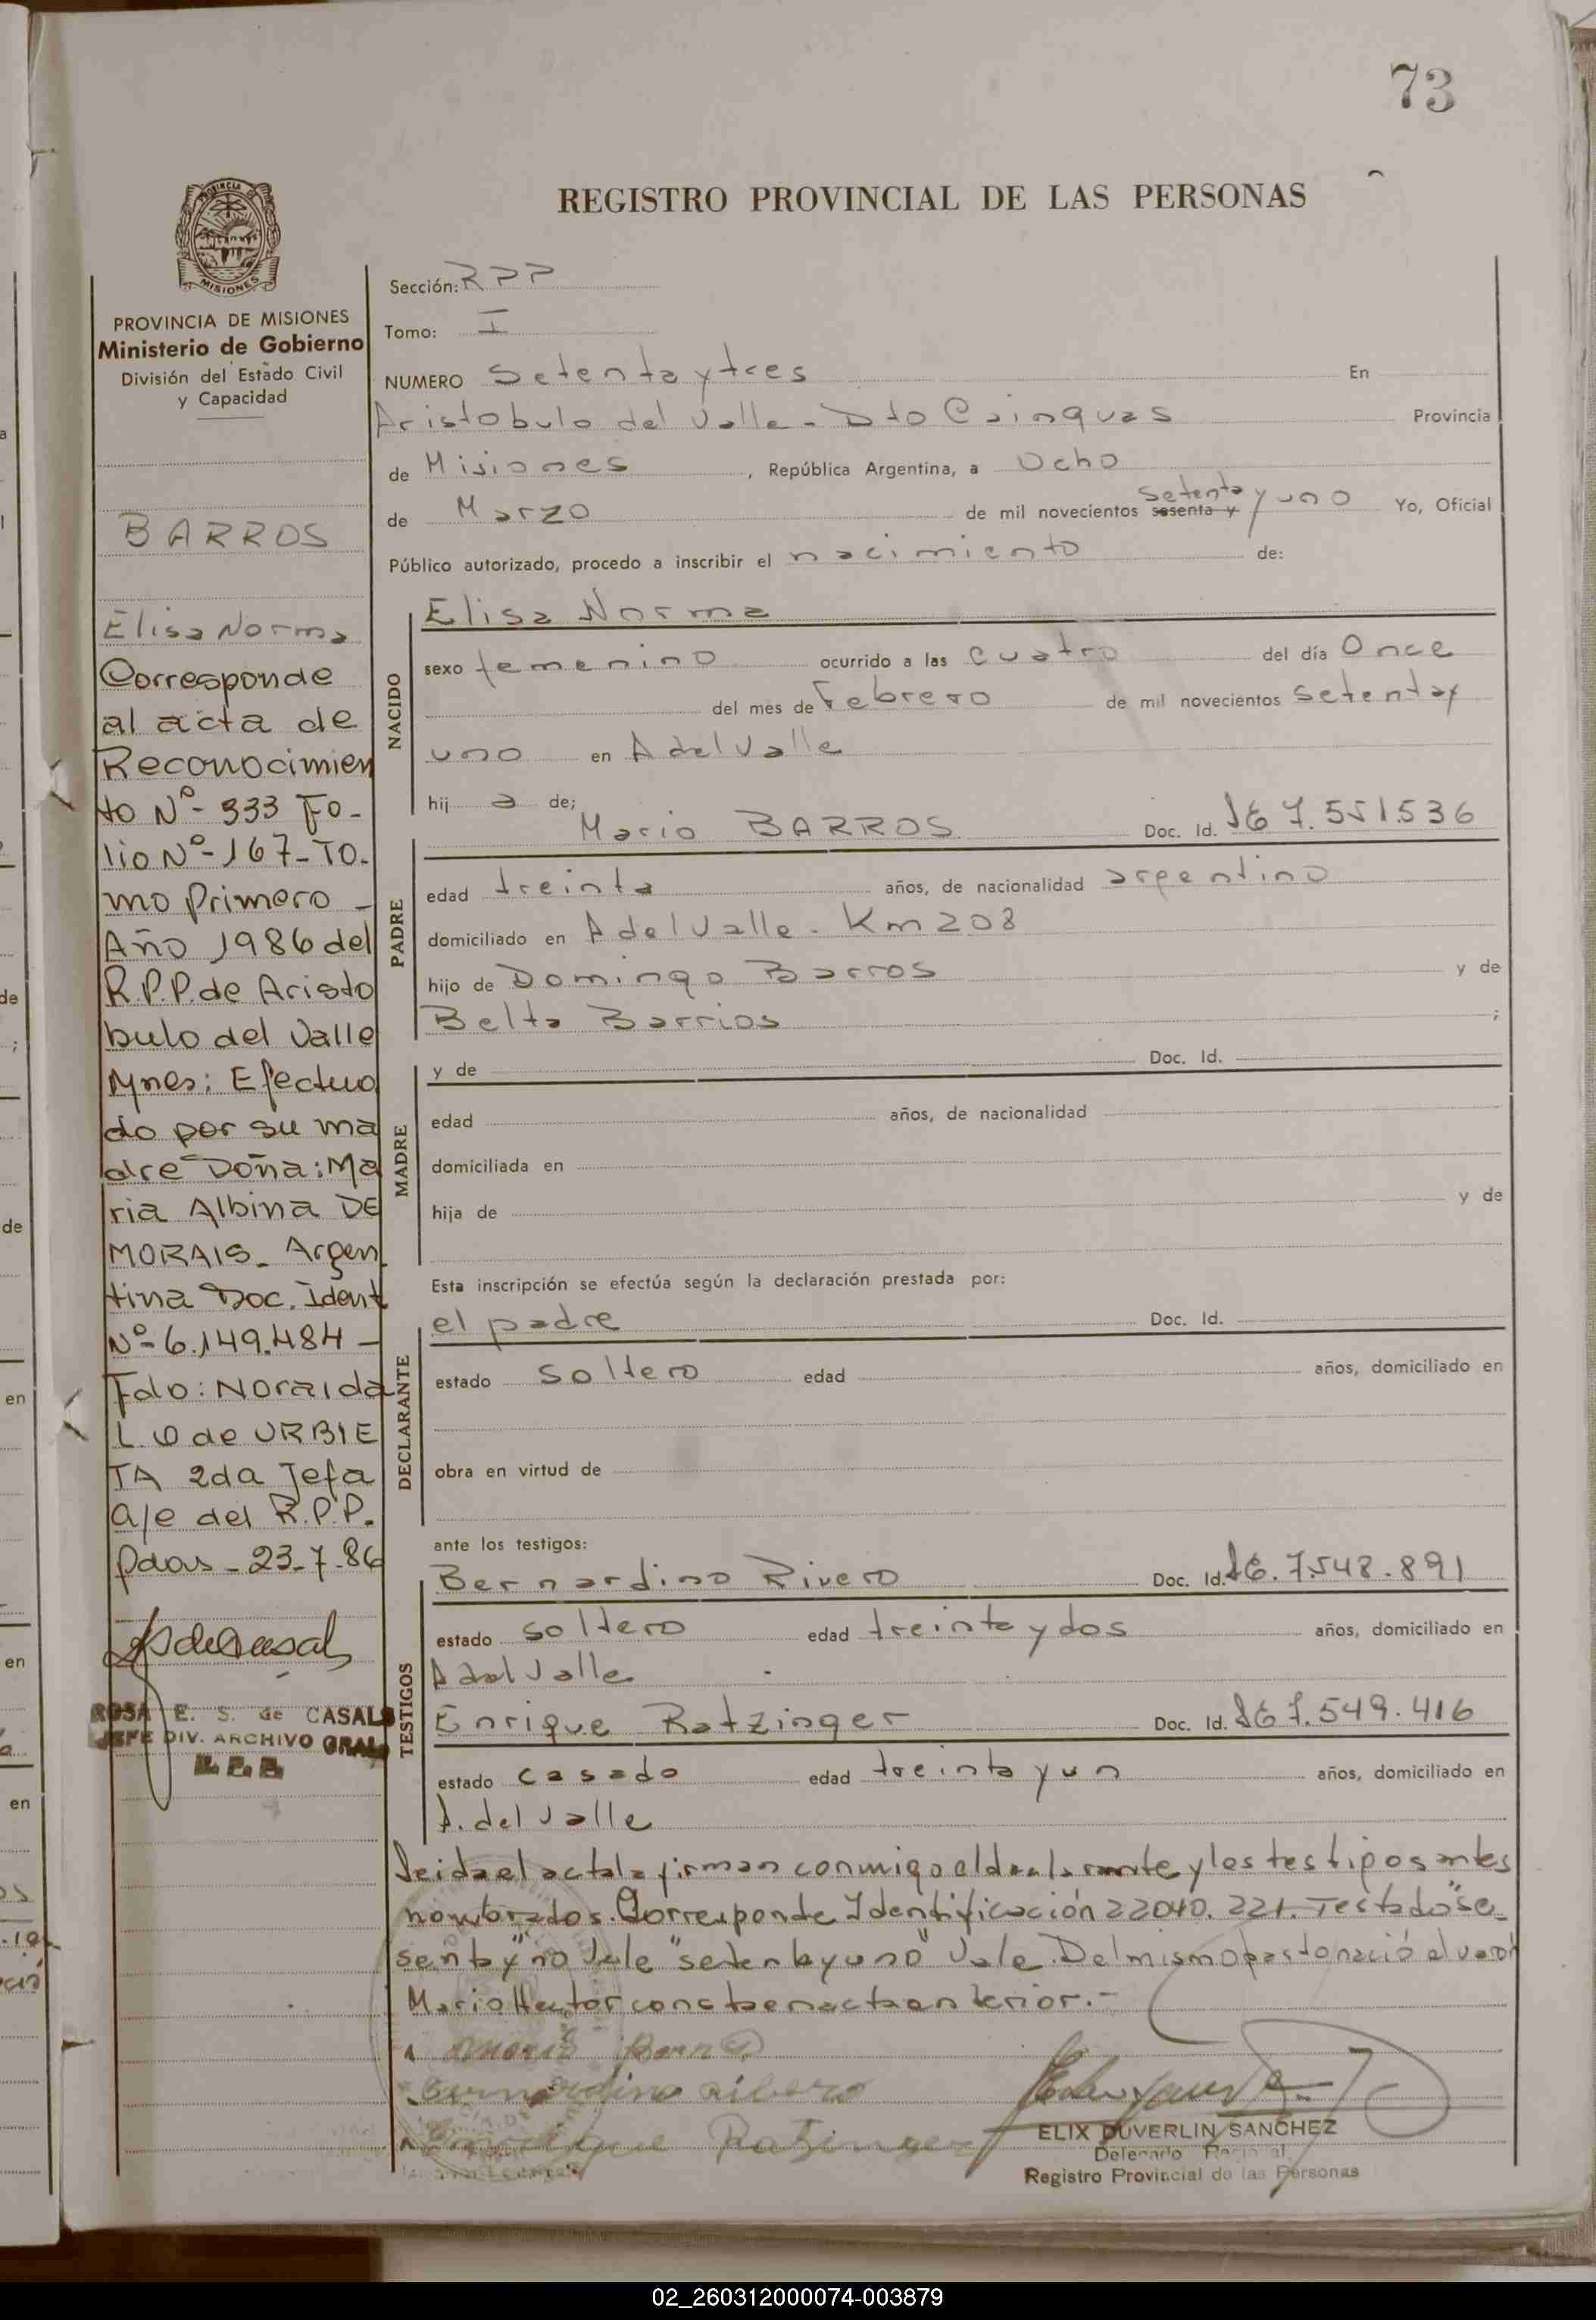 73
REGISTRO PROVINCIAL DE LAS PERSONAS
PROVINCIA DE MISIONES
Ministerio de Gobierno
División del Estado Civil
y Capacidad
BARROS
Elisa Norma
Corresponde
al acta de
Reconocimien
to Nº- 333 Fo-
lio Nº-167-TO-
mo Primero -
Año 1986 del
R.P.P. de Aristo
bulo del Valle
Mnes: Efectua
do por su ma
dre Doña: Ma
ria Albina DE
MORAIS_ Argen
tina Doc. Ident
Nº-6.149.484 -
Fdo: Noraida
L. de URBIE
TA 2da Jefa
a/e del R.P.P.
Pdas - 23-7-86
ROSA E. S. de CASALS
JEFE DIV. ARCHIVO GRAL
R. P. P.
Sección: RPP
Tomo: I
NUMERO Setenta y tres En
Aristobulo del Valle - Dto Cainguas Provincia
de Misiones, República Argentina, a Ocho
de Marzo de mil novecientos sesenta y setenta y uno Yo, Oficial
Público autorizado, procedo a inscribir el nacimiento de:
NACIDO
Elisa Norma
sexo femenino ocurrido a las cuatro del día Once
del mes de Febrero de mil novecientos setenta y
uno en A del Valle
hij a de;
PADRE
Mario BARROS Doc. Id. I67.551.536
edad treinta años, de nacionalidad argentino
domiciliado en A del Valle - Km 208
hijo de Domingo Barros y de
Belta Barrios ;
MADRE
y de Doc. Id.
edad años, de nacionalidad
domiciliada en
hija de y de
Esta inscripción se efectúa según la declaración prestada por:
DECLARANTE
el padre Doc. Id.
estado soltero edad años, domiciliado en
obra en virtud de
ante los testigos:
TESTIGOS
Bernardino Rivero Doc. Id. I6.7.548.891
estado soltero edad treinta y dos años, domiciliado en
A del Valle
Enrique Ratzinger Doc. Id. I67.549.416
estado casado edad treinta y un años, domiciliado en
A. del Valle
Leida el acta la firman conmigo el declarante y los testigos antes
nombrados. Corresponde Identificación 22040.221. Testado "se-
senta y" no Vale "setenta y uno" Vale. Del mismo parto nació el varón
Mario Hector consta en acta anterior.-
Bernardino Ribero
Enrique Ratzinger
ELIX DUVERLIN SANCHEZ
Delegado Regional
Registro Provincial de las Personas
02_260312000074-003879